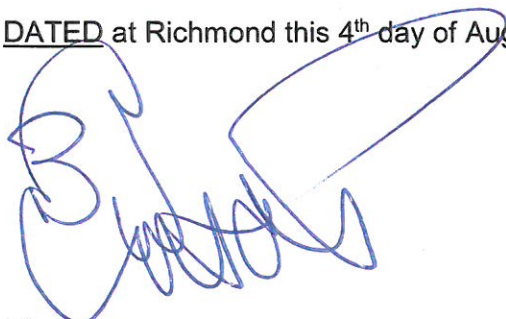 DATED at Richmond this 4th day of Aug